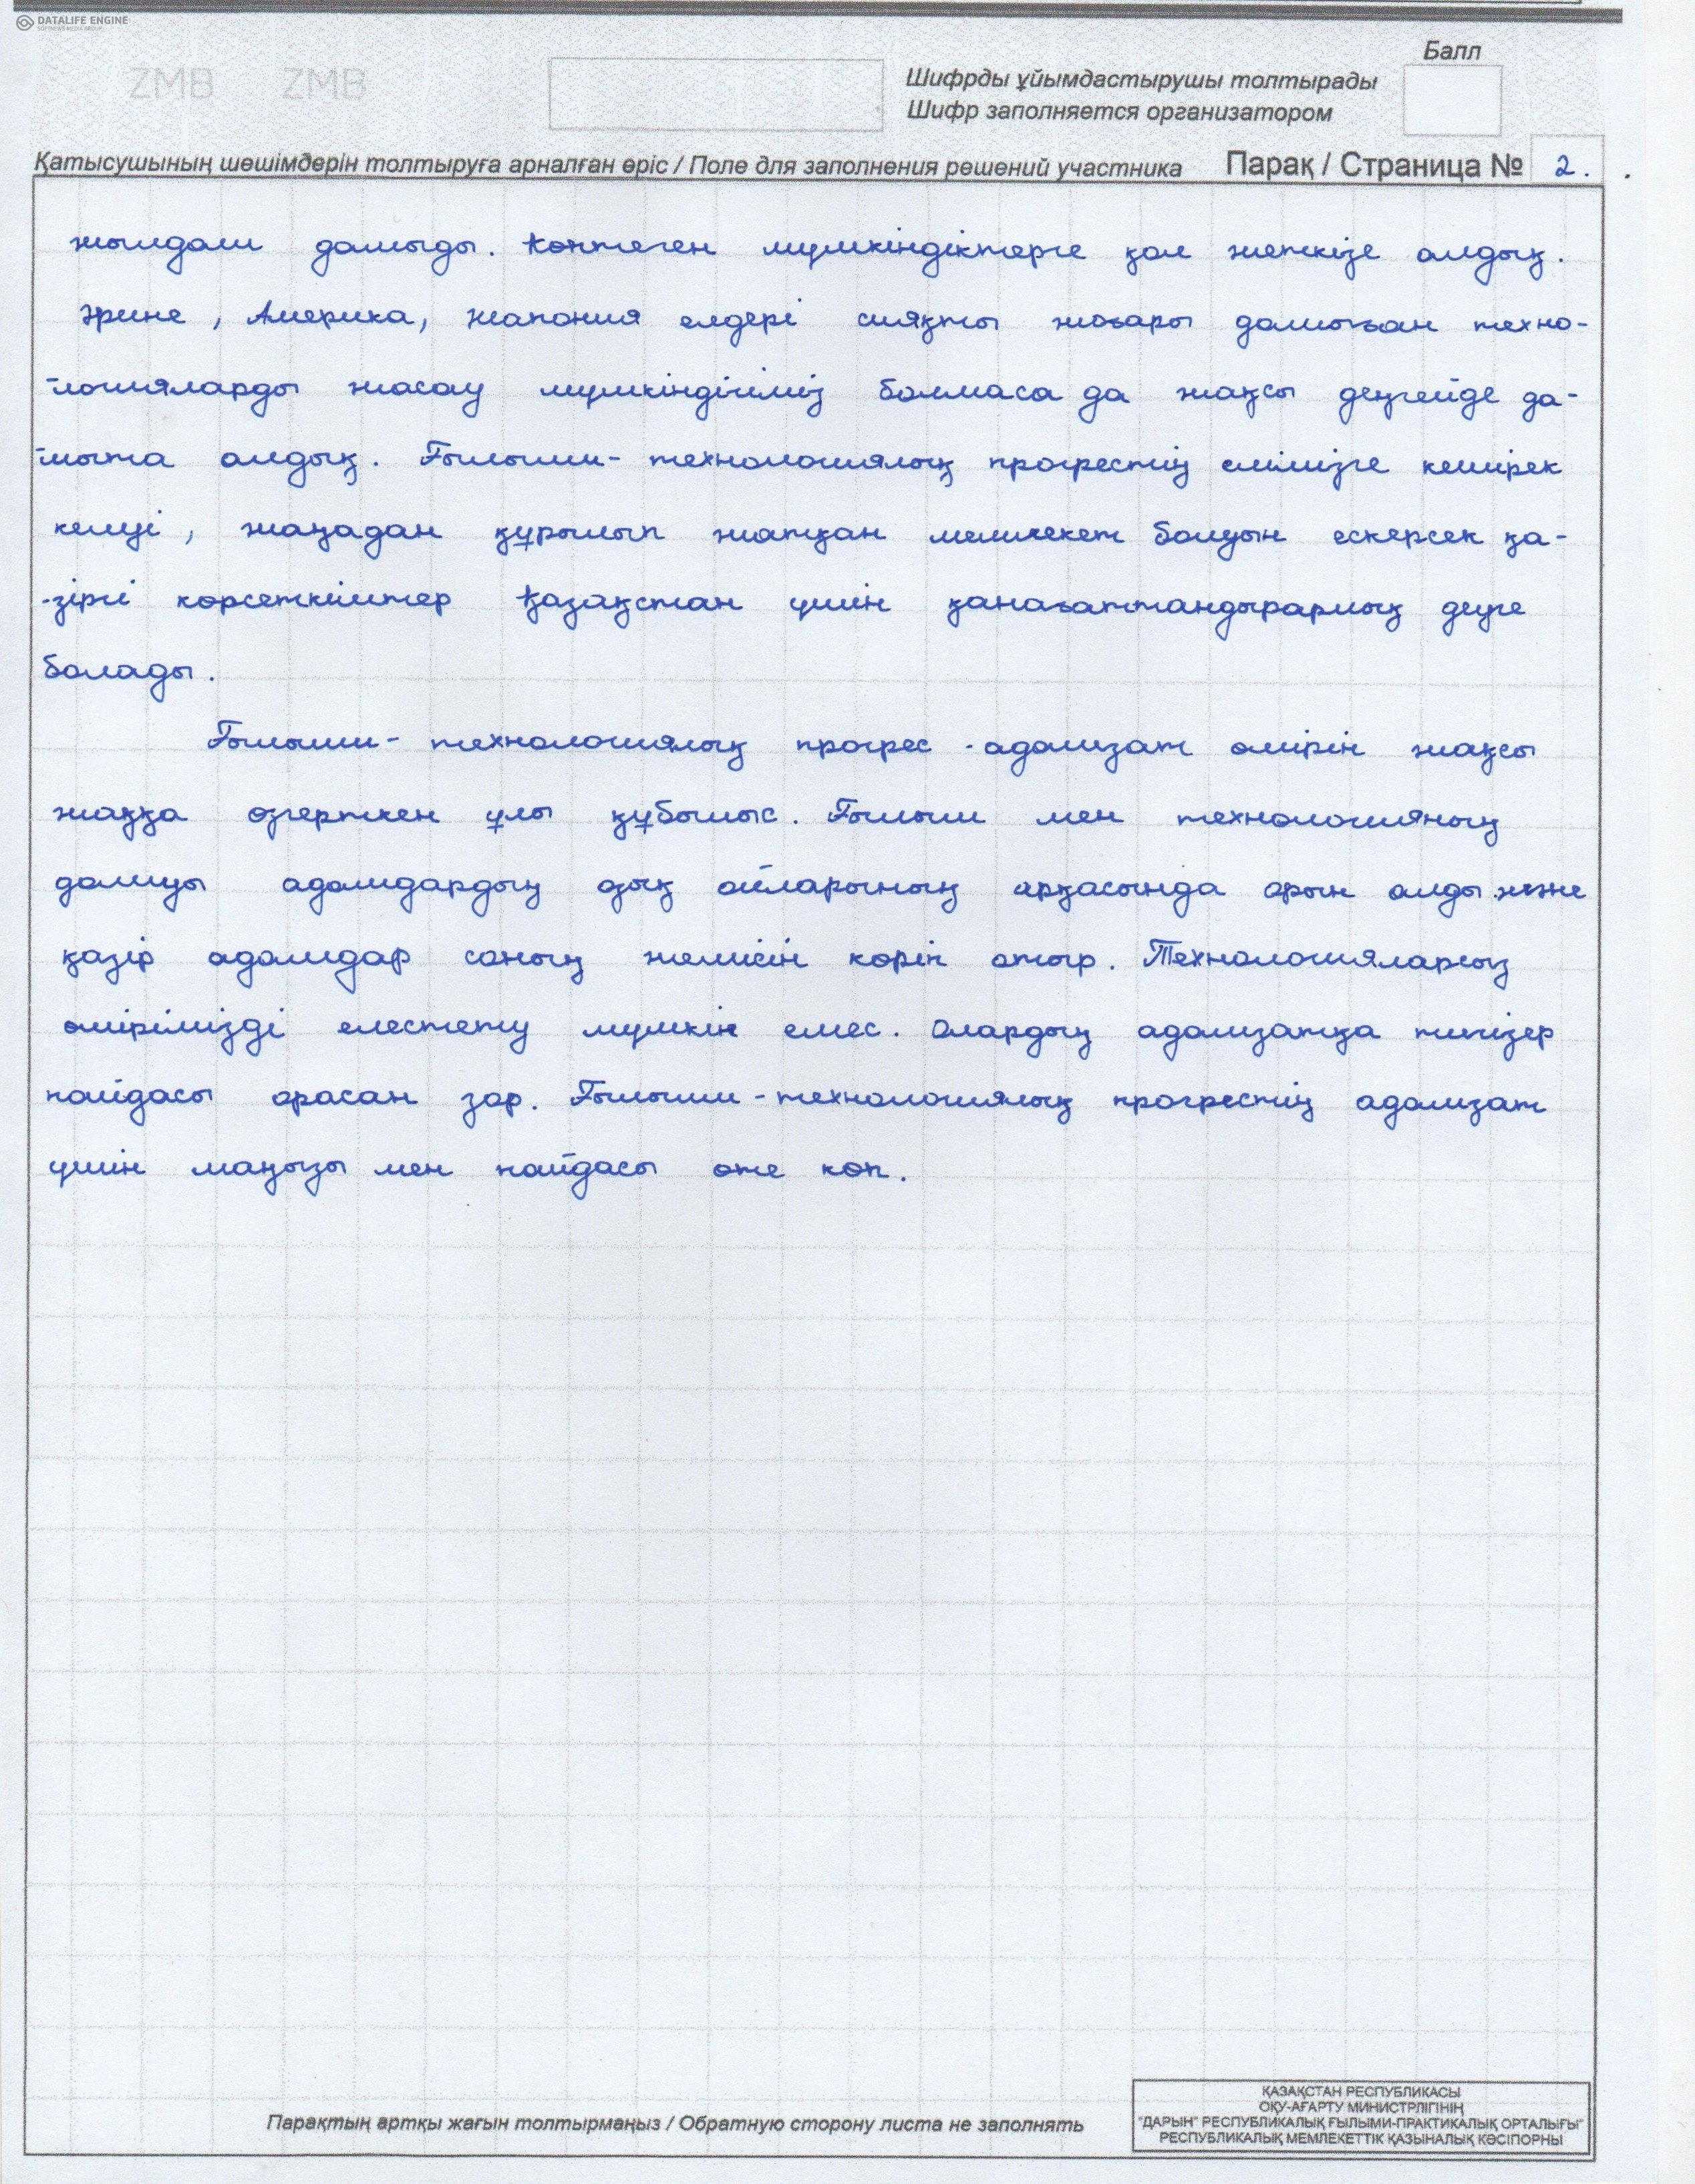 DATALIFE ENGINE
ZMB ZMB
Балл
Шифрды ұйымдастырушы толтырады
Шифр заполняется организатором
Қатысушының шешімдерін толтыруға арналған өріс / Поле для заполнения решений участника Парақ / Страница № 2.
жылдам дамыды. Көптеген мүмкіндіктерге қол жеткізе алдық.
Әрине, Америка, Жапония елдері сияқты жоғары дамыған техно-
логияларды жасау мүмкіндігіміз болмаса да жақсы деңгейде да-
мыта алдық. Ғылыми-технологиялық прогрестің елімізге кешірек
келуі, жаңадан құрылып жатқан мемлекет болуын ескерсек қа-
-зіргі көрсеткіштер Қазақстан үшін қанағаттандырарлық деуге
болады.
Ғылыми-технологиялық прогрес - адамзат өмірін жақсы
жаққа өзгерткен ұлы құбылыс. Ғылым мен технологияның
дамуы адамдардың озық ойларының арқасында орын алды және
қазір адамдар соның жемісін көріп отыр. Технологияларсыз
өмірімізді елестету мүмкін емес. Олардың адамзатқа тигізер
пайдасы орасан зор. Ғылыми-технологиялық прогрестің адамзат
үшін маңызы мен пайдасы өте көп.
Парақтың артқы жағын толтырмаңыз / Обратную сторону листа не заполнять
ҚАЗАҚСТАН РЕСПУБЛИКАСЫ
ОҚУ-АҒАРТУ МИНИСТРЛІГІНІҢ
"ДАРЫН" РЕСПУБЛИКАЛЫҚ ҒЫЛЫМИ-ПРАКТИКАЛЫҚ ОРТАЛЫҒЫ"
РЕСПУБЛИКАЛЫҚ МЕМЛЕКЕТТІК ҚАЗЫНАЛЫҚ КӘСІПОРНЫ